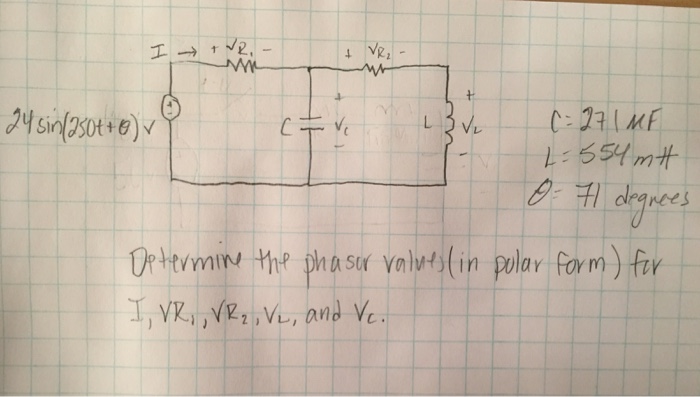 I → + VR₁ -
+ VR₂ -
24 sin(250t + θ) v
+
-
C
+
Vc
-
L
+
VL
-
C = 271 MF
L = 554 mH
θ = 71 degrees
Determine the phasor values (in polar form) for
I, VR₁, VR₂, VL, and Vc.